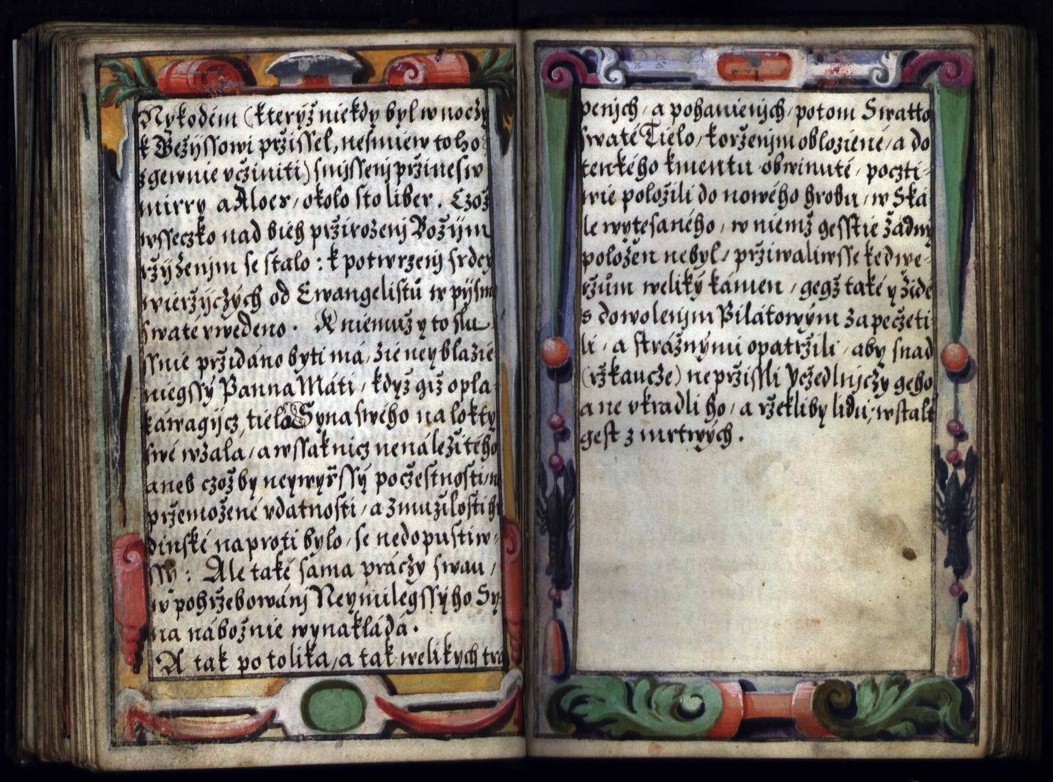 Nykodém (kterýž niekdy byl w noczy
k Gežyssowi pržissel, nesmiew toho
zgewnie včžiniti) smjssenj pržinesw
mirry a Aloes / okolo sto liber. Czož
wsseczko nad bieh pržirozenj Božým
ržýzenjm se stalo : k potwrzenj srdcy
wieržýczých od Ewangelistů w pýsmě
swaté vwedeno. K niemuž y to slu
ssnie pržidáno býti má / žie neyblažie
niegssý Panna Máti / když giž opla-
káwagjcz, tielo Syna swého na lokty
swé wzala / a wssak nicz nenáležitého
aneb czožby neywyšssý počžestnosti / n
pržemožené vdatnosti / a zmužilosti h
dinské naproti bylo / se nedopustiw-
ssy : Ale také sáma práczý swau /
w pohržebowánj Neymilegssýho Sy-
na nábožnie wynakláda.
A tak po tolika / a tak welikých tra
penjch / a pohanienjch / potom Swatto
swaté Tielo / korženjm obložiené / a do
tenkého kmentu obwinuté / poczti-
wie položili do nowého hrobu / w Ská
le wytesaného / w niemž gesstie žádný
položen nebyl / pržiwaliwsse ke dwe-
ržům weliký kámen / gegž také y židé
s dowolenjm Pilátowým zapečžeti
li / a strážnými opatržili / aby snad
(ržkaucže) nepržissli Včžedlnjczy geho
a ne vkradli ho / a ržekliby lidu; wstalť
gest z mrtwých.